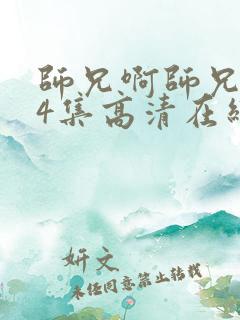 師兄啊師兄
4集高清在線
妍文
未經同意禁止轉載